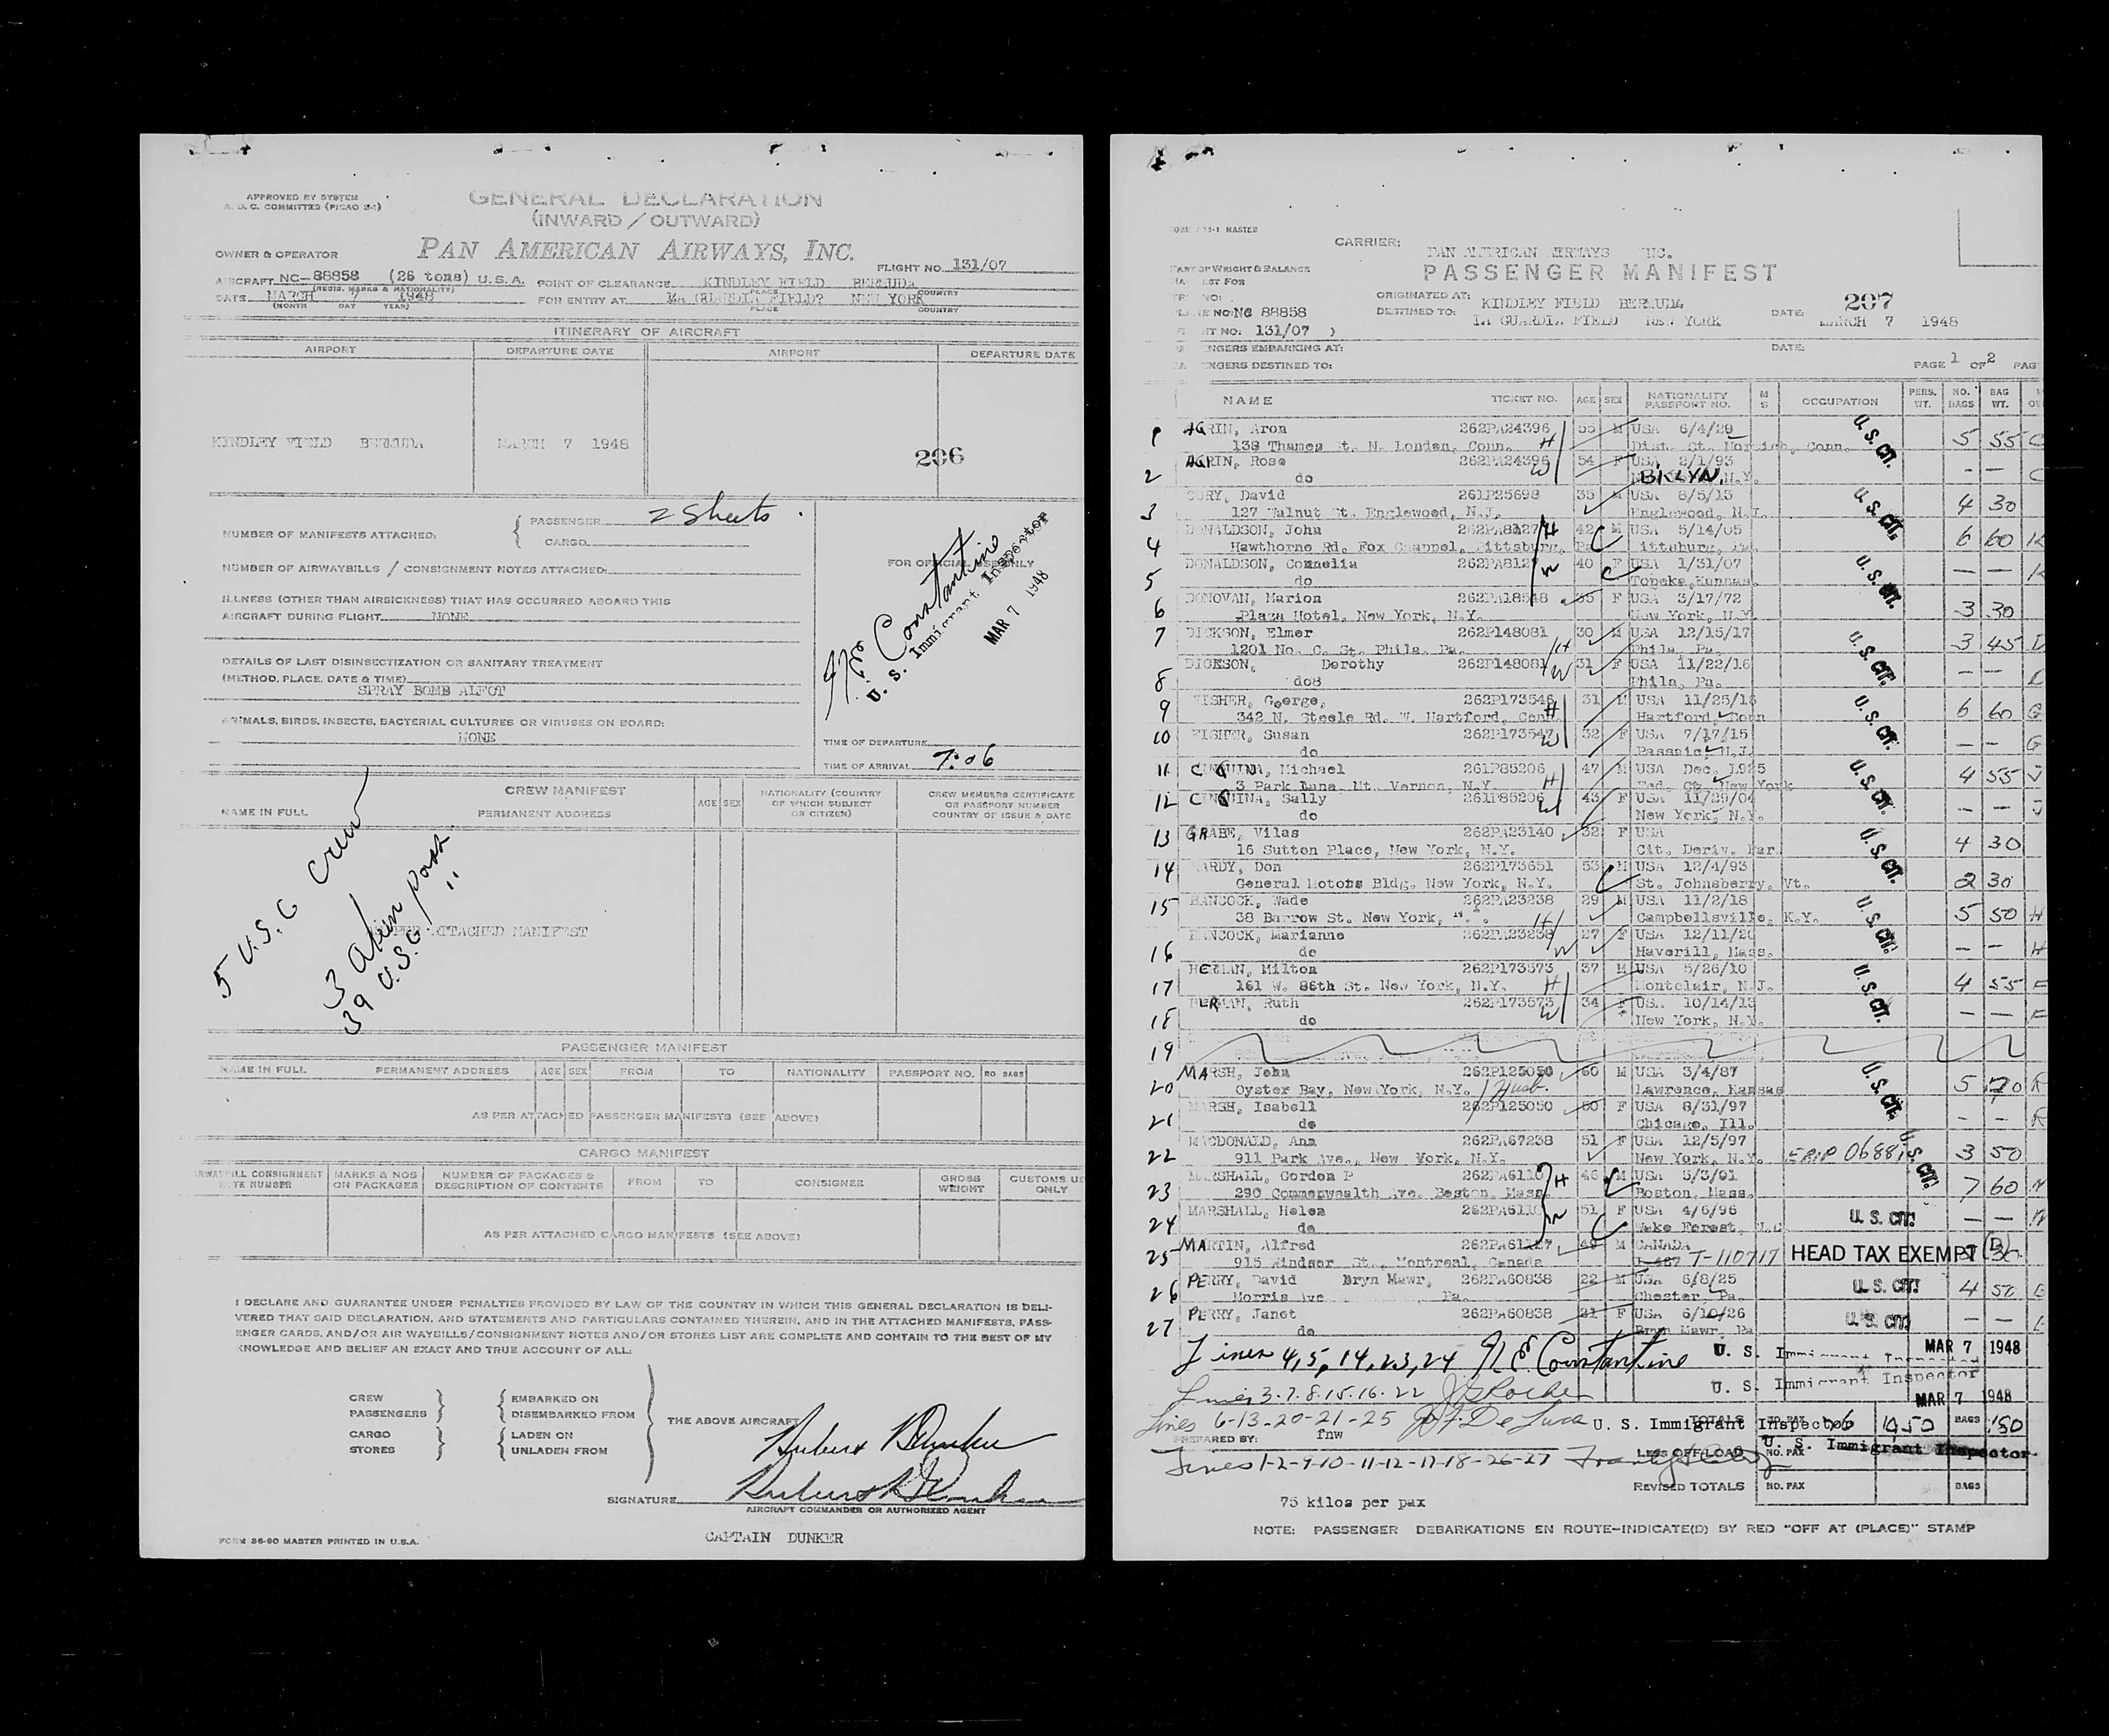 APPROVED BY SYSTEM
A. O. C. COMMITTEE (PICAO 2-1)
GENERAL DECLARATION
(INWARD / OUTWARD)
OWNER & OPERATOR PAN AMERICAN AIRWAYS, INC.
FLIGHT NO. 131/07
AIRCRAFT NC-88858 (26 tons) U.S.A. POINT OF CLEARANCE KINDLEY FIELD BERMUDA
(REGIS. MARKS & NATIONALITY) PLACE COUNTRY
DATE MARCH 7 1948 FOR ENTRY AT LA GUARDIA FIELD? NEW YORK
(MONTH DAY YEAR) PLACE COUNTRY
ITINERARY OF AIRCRAFT
AIRPORT DEPARTURE DATE AIRPORT DEPARTURE DATE
KINDLEY FIELD BERMUDA MARCH 7 1948
206
NUMBER OF MANIFESTS ATTACHED: PASSENGER 2 Sheets
CARGO
NUMBER OF AIRWAYBILLS / CONSIGNMENT NOTES ATTACHED:
FOR OFFICIAL USE ONLY
Constantino
U. S. Immigrant Inspector
MAR 7 1948
ILLNESS (OTHER THAN AIRSICKNESS) THAT HAS OCCURRED ABOARD THIS
AIRCRAFT DURING FLIGHT NONE
DETAILS OF LAST DISINSECTIZATION OR SANITARY TREATMENT
(METHOD, PLACE, DATE & TIME)
SPRAY BOMB ALFOT
ANIMALS, BIRDS, INSECTS, BACTERIAL CULTURES OR VIRUSES ON BOARD:
NONE
TIME OF DEPARTURE
TIME OF ARRIVAL 7:06
CREW MANIFEST
NAME IN FULL PERMANENT ADDRESS AGE SEX NATIONALITY (COUNTRY OF WHICH SUBJECT OR CITIZEN) CREW MEMBERS CERTIFICATE OR PASSPORT NUMBER COUNTRY OF ISSUE & DATE
5 U.S.C crew
3 alien pass
39 U.S.C "
PER ATTACHED MANIFEST
PASSENGER MANIFEST
NAME IN FULL PERMANENT ADDRESS AGE SEX FROM TO NATIONALITY PASSPORT NO. NO. BAGS
AS PER ATTACHED PASSENGER MANIFESTS (SEE ABOVE)
CARGO MANIFEST
CONSIGNMENT NOTE NUMBER MARKS & NOS ON PACKAGES NUMBER OF PACKAGES & DESCRIPTION OF CONTENTS FROM TO CONSIGNEE GROSS WEIGHT CUSTOMS USE ONLY
AS PER ATTACHED CARGO MANIFESTS (SEE ABOVE)
I DECLARE AND GUARANTEE UNDER PENALTIES PROVIDED BY LAW OF THE COUNTRY IN WHICH THIS GENERAL DECLARATION IS DELI-
VERED THAT SAID DECLARATION, AND STATEMENTS AND PARTICULARS CONTAINED THEREIN, AND IN THE ATTACHED MANIFESTS, PASS-
ENGER CARDS, AND/OR AIR WAYBILLS/CONSIGNMENT NOTES AND/OR STORES LIST ARE COMPLETE AND CONTAIN TO THE BEST OF MY
KNOWLEDGE AND BELIEF AN EXACT AND TRUE ACCOUNT OF ALL:
CREW EMBARKED ON
PASSENGERS DISEMBARKED FROM
THE ABOVE AIRCRAFT
CARGO LADEN ON
STORES UNLADEN FROM
SIGNATURE
AIRCRAFT COMMANDER OR AUTHORIZED AGENT
CAPTAIN DUNKER
FORM 36-90 MASTER PRINTED IN U.S.A.
CARRIER: PAN AMERICAN AIRWAYS INC.
PASSENGER MANIFEST
PART OF WEIGHT & BALANCE
ORIGINATED AT: KINDLEY FIELD BERMUDA 207
PLANE NO: NC 88858 DESTINED TO: LA GUARDIA FIELD NEW YORK DATE: MARCH 7 1948
131/07
PASSENGERS EMBARKING AT: DATE:
PASSENGERS DESTINED TO: PAGE 1 OF 2 PAG
NAME TICKET NO. AGE SEX NATIONALITY PASSPORT NO. M S OCCUPATION PERS. WT. NO. BAGS BAG WT.
1 AGRIN, Aron 262PA24396 55 M USA 6/4/29 U.S. CIT. 5 55
138 Thames St. N. London, Conn. H Dist. Ct. Norwich, Conn.
2 AGRIN, Rose 262PA24396 54 F USA 2/1/93 — —
do W BKLYN, N.Y.
3 CORY, David 261P25698 35 M USA 8/5/13 U.S. CIT. 4 30
127 Walnut St. Englewood, N.J. Englewood, N.J.
4 DONALDSON, John 262PA8127 H 42 M USA 5/14/05 6 60
Hawthorne Rd. Fox Chappel, Pittsburg, Pa Pittsburg, Pa.
5 DONALDSON, Cornelia 262PA8127 W 40 F USA 1/31/07 U.S. CIT. — —
do Topeka, Kansas
6 DONOVAN, Marion 262PA18548 F USA 3/17/72 3 30
Plaza Hotel, New York, N.Y. New York, N.Y.
7 DICKSON, Elmer 262P148081 30 M USA 12/15/17 U.S. CIT. 3 45
1201 No. C. St. Phila. Pa. H Phila. Pa.
8 DICKSON, Dorothy 262P148081 W 31 F USA 11/22/16 — —
do8 Phila, Pa.
9 FISHER, George, 262P173546 H 31 M USA 11/25/16 U.S. CIT. 6 60
342 N. Steele Rd. W. Hartford, Conn. Hartford, Conn
10 FISHER, Susan 262P173547 W 32 F USA 7/17/15 — —
do Passaic, N.J.
11 Michael 261P85206 47 M USA Dec. 1925 U.S. CIT. 4 55
3 Park Lane, Mt. Vernon, N.Y. H Fed. Ct. New York
12 Sally 261P85206 W 43 F USA 11/29/04 — —
do New York, N.Y.
13 GRABE, Vilas 262PA23140 32 F USA U.S. CIT. 4 30
16 Sutton Place, New York, N.Y. Cit. Deriv. Par.
14 HARDY, Don 262P173651 53 M USA 12/4/93 2 30
General Motors Bldg. New York, N.Y. St. Johnsberry, Vt.
15 HANCOCK, Wade 262PA23238 29 M USA 11/2/18 U.S. CIT. 5 50 H
38 Barrow St. New York, N.Y. H Campbellsville, K.Y.
16 HANCOCK, Marianne 262PA23238 27 F USA 12/11/20 — — H
do W Haverill, Mass.
17 HERMAN, Milton 262P173573 37 M USA 5/26/10 U.S. CIT. 4 55
161 W. 86th St. New York, N.Y. H Montclair, N.J.
18 HERMAN, Ruth 262P173573 W 34 F USA 10/14/13 — —
do New York, N.Y.
19
20 MARSH, John 262P125050 60 M USA 3/4/87 U.S. CIT. 5 70 R
Oyster Bay, New York, N.Y. Husb. Lawrence, Kansas
21 MARSH, Isabell 262P125050 50 F USA 8/31/97 — — R
do Chicago, Ill.
22 MACDONALD, Ann 262PA67238 51 F USA 12/5/97 U.S. CIT. 3 50
911 Park Ave., New York, N.Y. New York, N.Y.
23 MARSHALL, Gordon P 262PA6110 H 46 M USA 5/3/01 7 60
290 Commonwealth Ave. Boston, Mass. Boston, Mass.
24 MARSHALL, Helen 262PA6110 W 51 F USA 4/6/96 U.S. CIT! — —
do Wake Forest, N.C
25 MARTIN, Alfred 49 M CANADA HEAD TAX EXEMPT
915 Windsor St., Montreal, Canada T-110717
26 PERRY, David Bryn Mawr, 262PA60838 22 M USA 6/8/25 U.S. CIT! 4 50
Morris Ave Pa. Chester, Pa.
27 PERRY, Janet 262PA60838 21 F USA 6/10/26 U.S. CIT! — —
do Bryn Mawr, Pa
Lines 4,5,14,23,24 N E Constantine U. S. Immigrant Inspector MAR 7 1948
Lines 3.7.8.15.16.22 U. S. Immigrant Inspector
MAR 7 1948
Lines 6-13-20-21-25 De Luca U. S. Immigrant Inspector TOTALS NO. PAX BAGS
PREPARED BY: fnw
Lines 1-2-9-10-11-12-17-18-26-27 LESS OFF LOAD NO. PAX U. S. Immigrant Inspector
REVISED TOTALS NO. PAX BAGS
75 kilos per pax
NOTE: PASSENGER DEBARKATIONS EN ROUTE-INDICATE(D) BY RED "OFF AT (PLACE)" STAMP